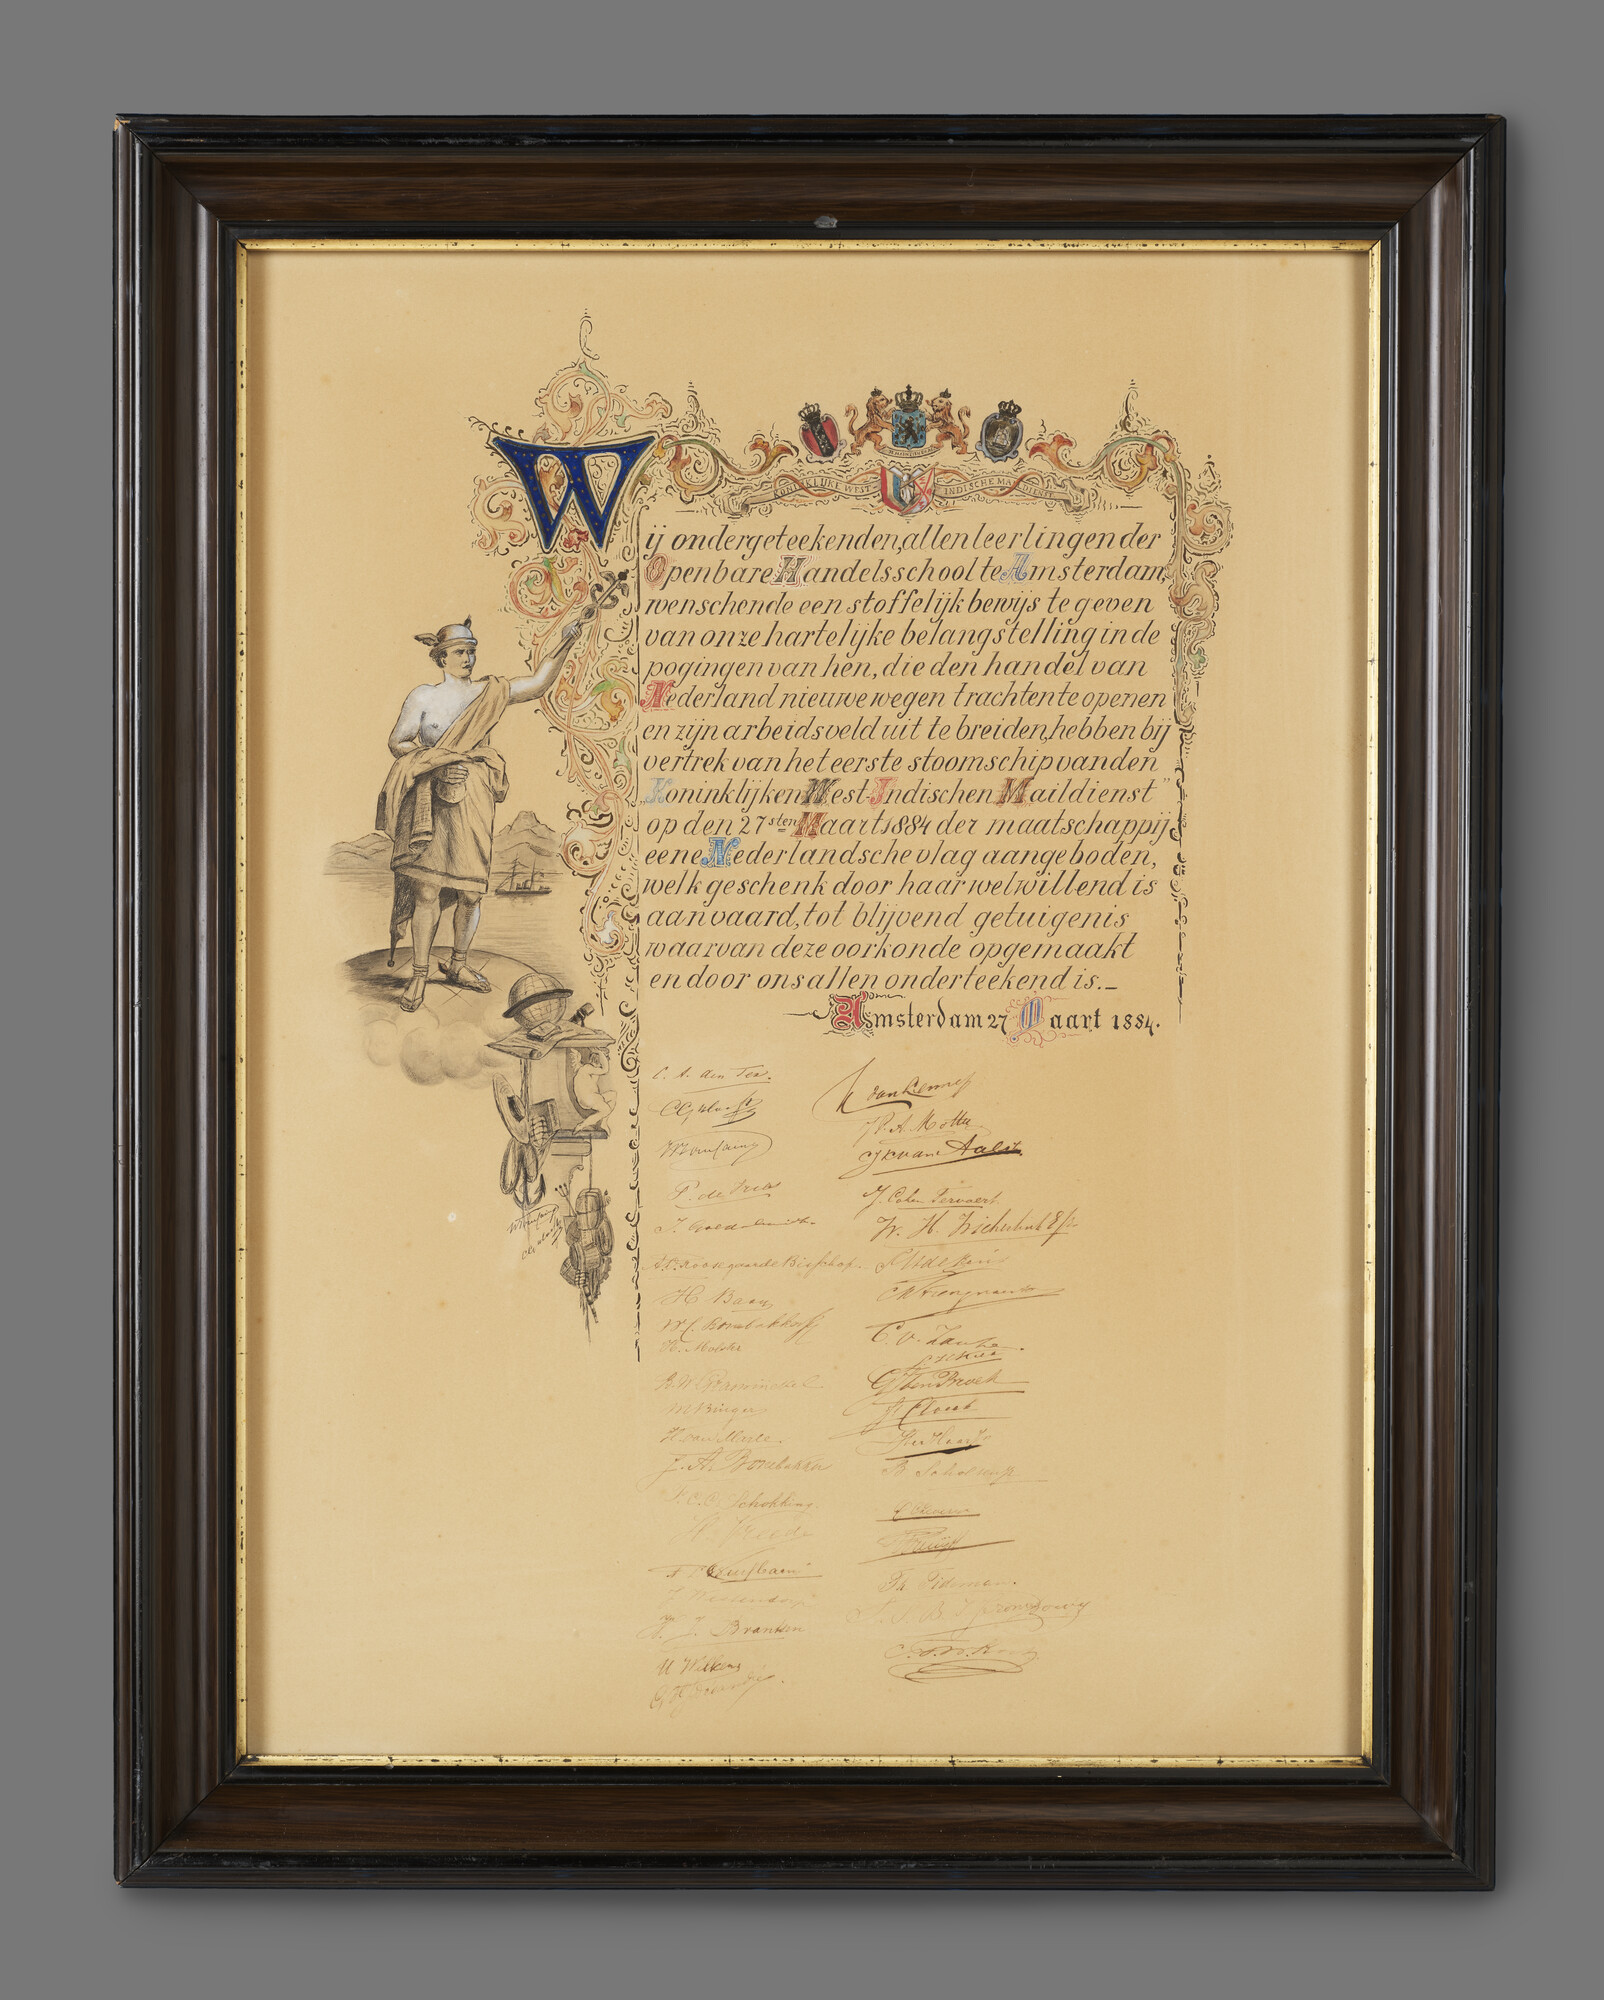 KONINKLIJKE WEST INDISCHE MAILDIENST
Wij ondergeteekenden, allen leerlingen der
Openbare Handelsschool te Amsterdam,
wenschende een stoffelijk bewijs te geven
van onze hartelijke belangstelling in de
pogingen van hen, die den handel van
Nederland nieuwe wegen trachten te openen
en zijn arbeidsveld uit te breiden, hebben bij
vertrek van het eerste stoomschip van den
„Koninklijken West-Indischen Maildienst"
op den 27sten Maart 1884 der maatschappij
eene Nederlandsche vlag aangeboden,
welk geschenk door haar welwillend is
aanvaard, tot blijvend getuigenis
waarvan deze oorkonde opgemaakt
en door ons allen onderteekend is.–
Amsterdam 27 Maart 1884.
C. A. den Tex.
P. de Vries
A. Rookgaarde Bisschop.
H Baay
K. Molster
M Bürger
H van Marle.
J. A. Bombakker
F. C. C. Schokking.
W. Vreede
J Westendorp
J. Branken
U Wilkens
van Lennep
J. P. A. Motta
van Aalst.
J. Cohen Tervaert
W. H.
G ten Broek
ter Haar
B Scholten
Th. Tideman.